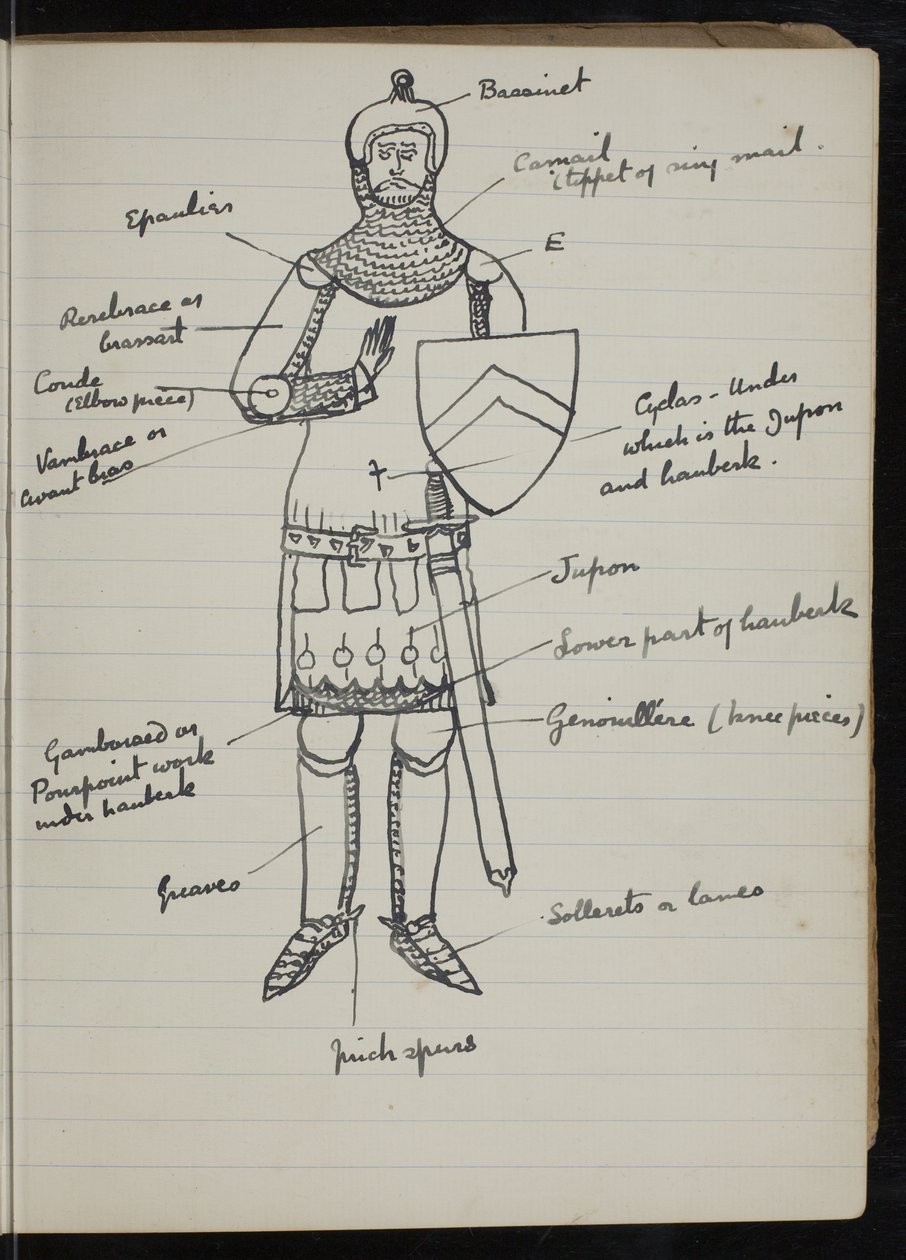 Bassinet
Camail
(tippet of ring mail.
Epaulier
E
Rerebrace or
brassart
Coude
(Elbow piece)
Cyclas - Under
which is the Jupon
and hauberk.
Vambrace or
avant bras
7
Jupon
Lower part of hauberk
Genouillére (knee pieces)
Gamboised or
Pourpoint work
under hauberk
Greaves
Sollerets or lames
Prick spurs